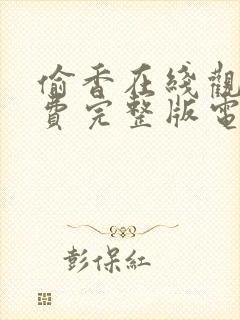 偷香在綫觀
費完整版電
彭保紅